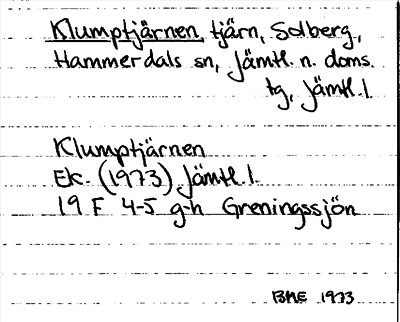 Klumptjärnen, tjärn, Solberg,
Hammerdals sn, Jämtl. n. doms.
tg, Jämtl. l.
Klumptjärnen
Ek. (1973) Jämtl l.
19 F 4-5 g-h Greningssjön
BME 1973